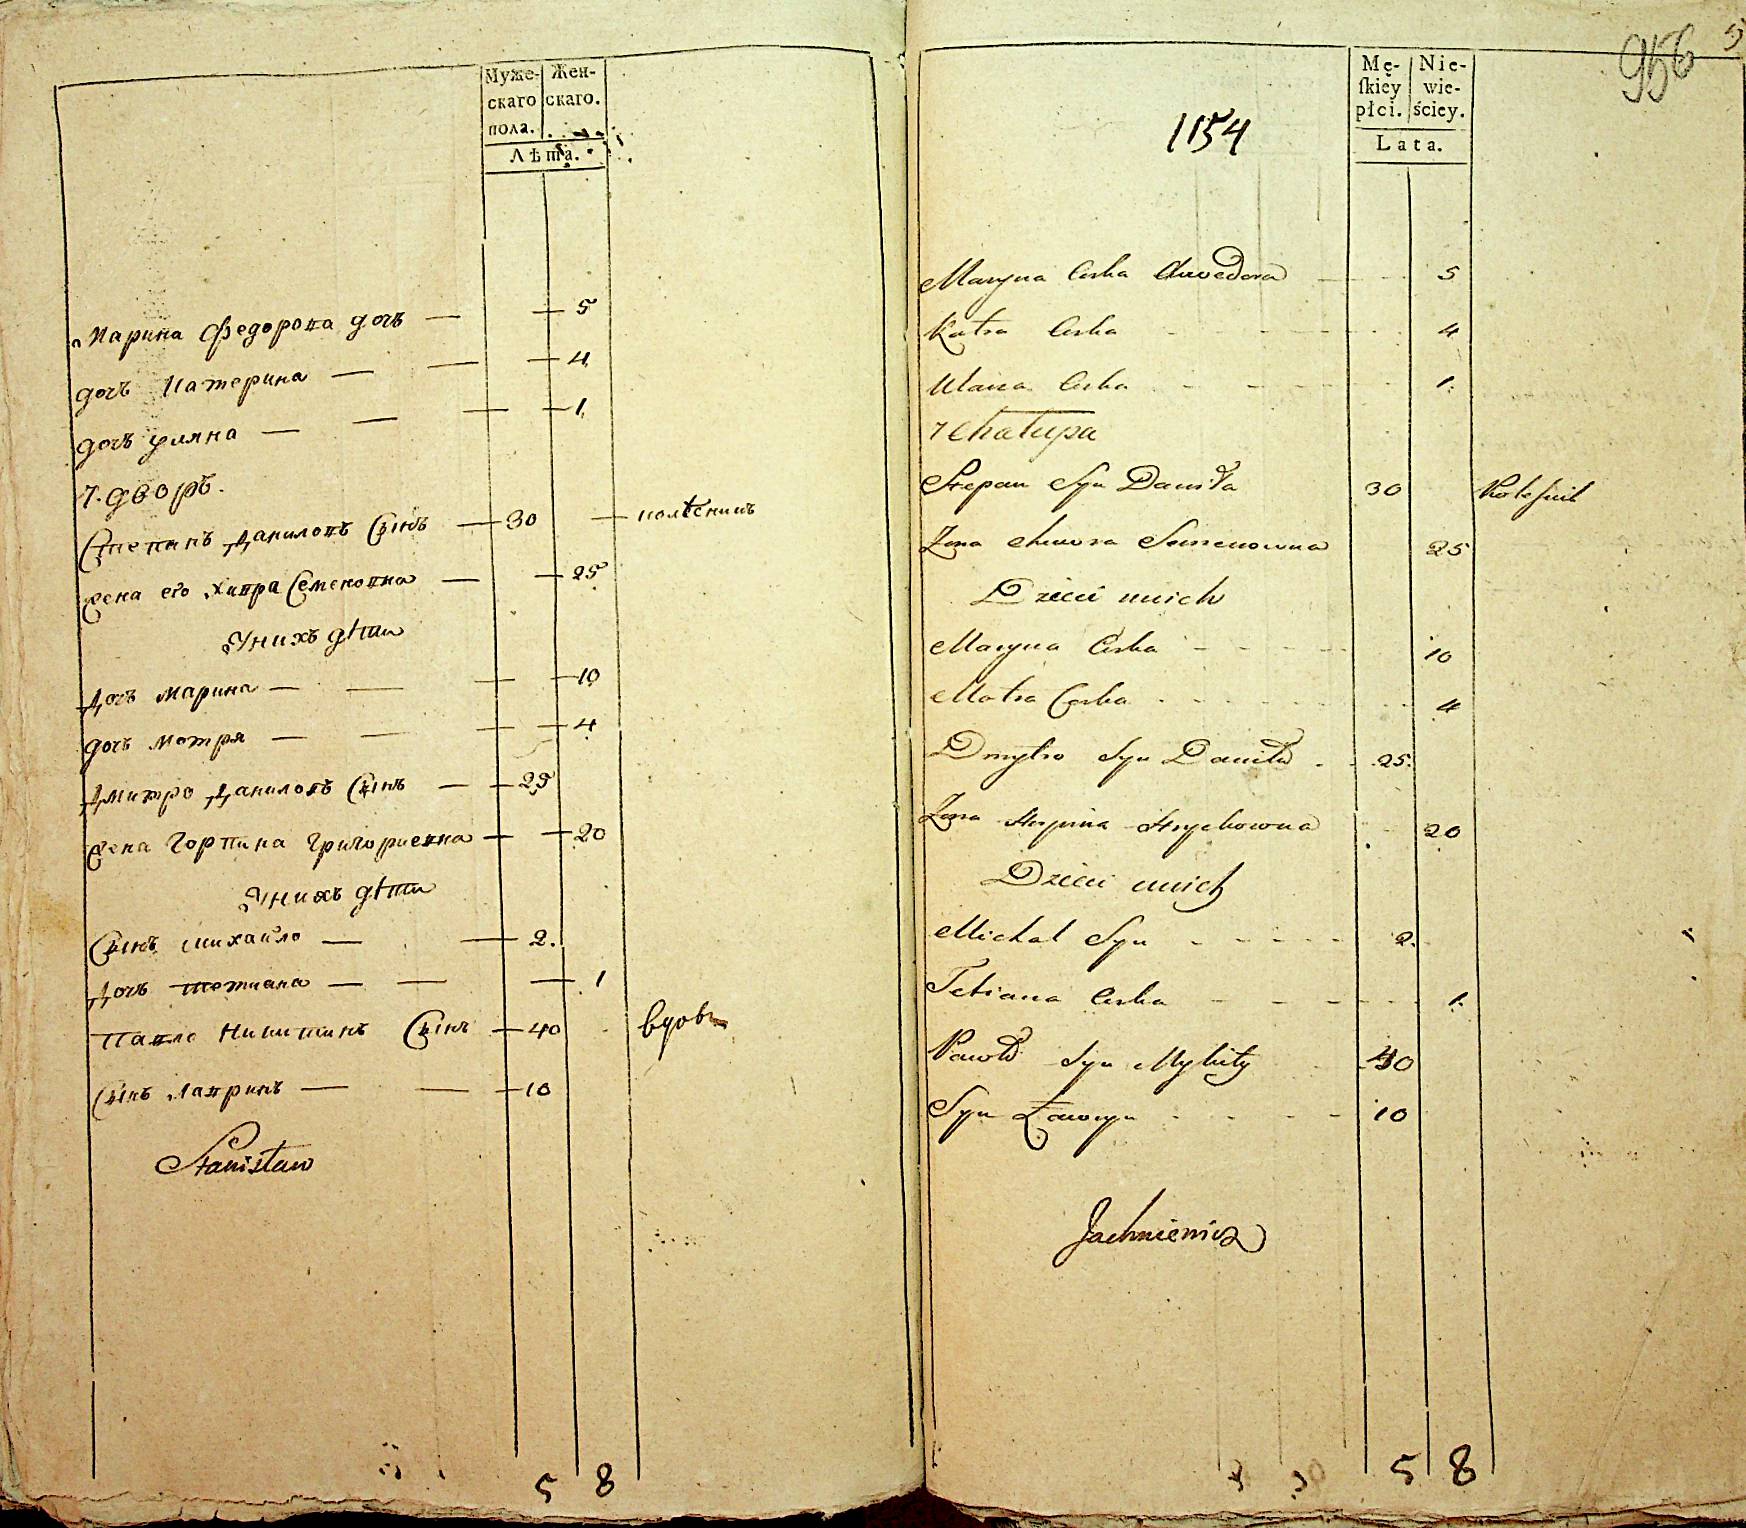 Муже-
скаго
пола.
Жен-
скаго.
Лѣта.
Марина Федорова дочь 5
дочь Катерина 4
дочь уляна 1
7. дворъ.
Степанъ Даниловъ Сынъ 30 колѣсникъ
жена его Хивра Семеновна 25
Унихъ дѣти
Дочь Марина 10
дочь Мотря 4
Дмитро Даниловъ Сынъ 25
жена Горпина Григориевна 20
Унихъ дѣти
Сынъ михайло 2.
Дочь тетиана 1
Павло Никитинъ Сынъ 40 вдовъ
Сынъ Лавринъ 10
Stanisław
5 8
956
5
1154
Mę-
skiey
płci.
Nie-
wie-
ściey.
Lata.
Maryna Corka Chwedora 5
Katra Corka 4
Ulana Corka 1.
7 Chałupa
Stepan Syn Daniła 30 Kolesnik
Zona Chiwra Semenowna 25
Dzieci unich
Maryna Corka 10
Motra Corka 4
Dmytro Syn Daniła 25.
Zona Horpina Hrychowna 20
Dzieci unich
Michał Syn 2.
Tetiana Corka 1.
Pawło Syn Mykity 40
Syn Ławryn 10
Jachniewicz
5 8